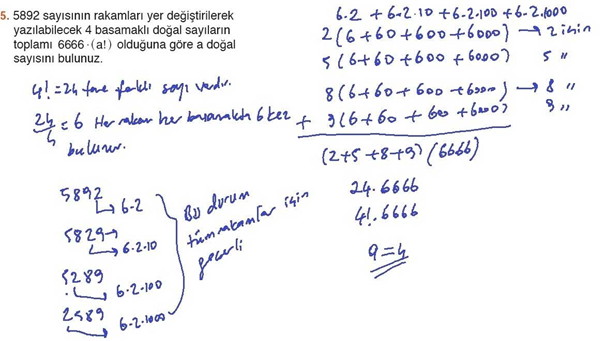 5. 5892 sayısının rakamları yer değiştirilerek
yazılabilecek 4 basamaklı doğal sayıların
toplamı 6666·(a!) olduğuna göre a doğal
sayısını bulunuz.
4! = 24 tane farklı sayı vardır.
24/4 = 6 Her rakam her basamakta 6 kez
bulunur.
5892
↳ 6·2
5829
↳ 6·2·10
5289
↳ 6·2·100
2589
↳ 6·2·1000
Bu durum
tüm rakamlar için
geçerli
6·2 + 6·2·10 + 6·2·100 + 6·2·1000
2(6+60+600+6000) → 2 için
5(6+60+600+6000) 5 "
8(6+60+600+6000) → 8 "
+ 9(6+60+600+6000) 9 "
(2+5+8+9)(6666)
24·6666
4!·6666
a=4